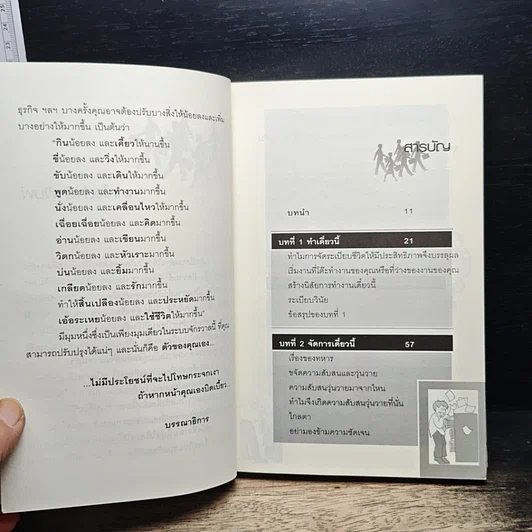 ธุรกิจ ฯลฯ บางครั้งคุณอาจต้องปรับบางสิ่งให้น้อยลงและเพิ่ม
บางอย่างให้มากขึ้น เป็นต้นว่า
"กินน้อยลง และเคี้ยวให้นานขึ้น
ขี่น้อยลง และวิ่งให้มากขึ้น
ขับน้อยลง และเดินให้มากขึ้น
พูดน้อยลง และทำงานมากขึ้น
นั่งน้อยลง และเคลื่อนไหวให้มากขึ้น
เฉื่อยเฉื่อยน้อยลง และคิดมากขึ้น
อ่านน้อยลง และเขียนมากขึ้น
วิตกน้อยลง และหัวเราะมากขึ้น
บ่นน้อยลง และยิ้มมากขึ้น
เกลียดน้อยลง และรักมากขึ้น
ทำให้สิ้นเปลืองน้อยลง และประหยัดมากขึ้น
เอ้อระเหยน้อยลง และใช้ชีวิตให้มากขึ้น"
มีมุมหนึ่งซึ่งเป็นเพียงมุมเดียวในระบบจักรวาลนี้ ที่คุณ
สามารถปรับปรุงได้แน่ๆ และนั่นก็คือ ตัวของคุณเอง...
...ไม่มีประโยชน์ที่จะไปโทษกระจกเงา
ถ้าหากหน้าคุณเองบิดเบี้ยว...
บรรณาธิการ
สารบัญ
บทนำ 11
บทที่ 1 ทำเดี๋ยวนี้ 21
ทำไมการจัดระเบียบชีวิตให้มีประสิทธิภาพจึงบรรลุผล
เริ่มงานที่โต๊ะทำงานของคุณหรือที่ว่างของงานของคุณ
สร้างนิสัยการทำงานเดี๋ยวนี้
ระเบียบวินัย
ข้อสรุปของบทที่ 1
บทที่ 2 จัดการเดี๋ยวนี้ 57
เรื่องของทหาร
ขจัดความสับสนและวุ่นวาย
ความสับสนวุ่นวายมาจากไหน
ทำไมจึงเกิดความสับสนวุ่นวายที่นั่น
ไกลตา
อย่ามองข้ามความชัดเจน